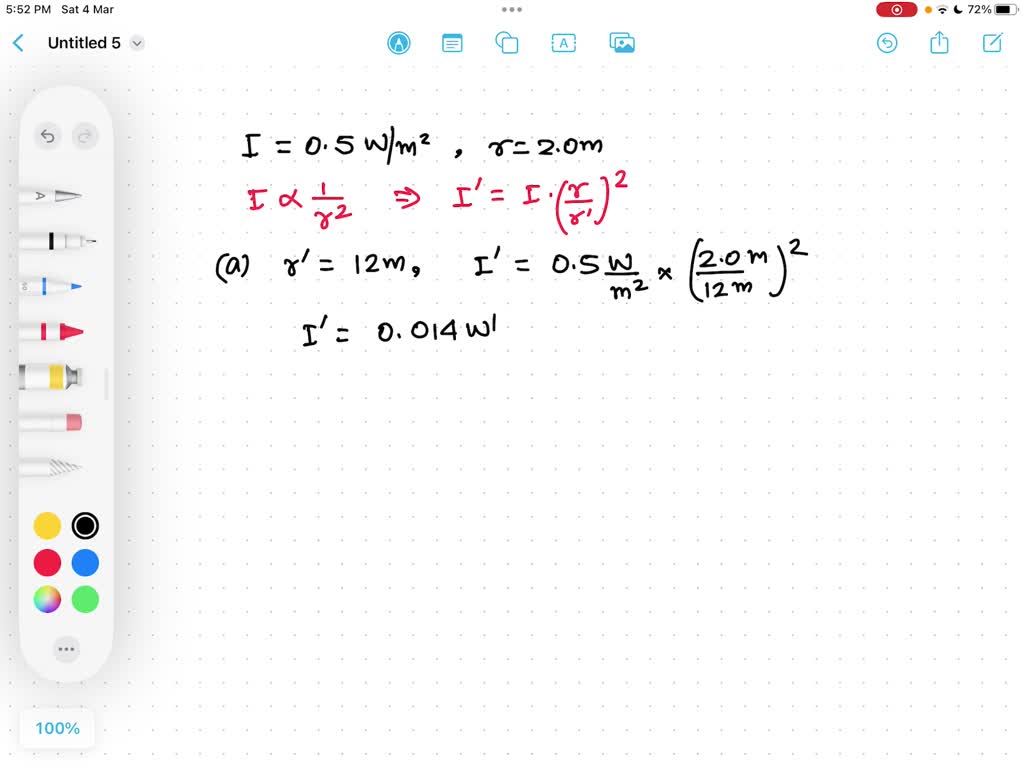 5:52 PM Sat 4 Mar 72%
Untitled 5
I = 0.5 W/m², r = 2.0m
I ∝ 1/r² ⇒ I' = I · (r/r')²
(a) r' = 12m, I' = 0.5 W/m² × (2.0 m/12 m)²
I' = 0.014 W
100%